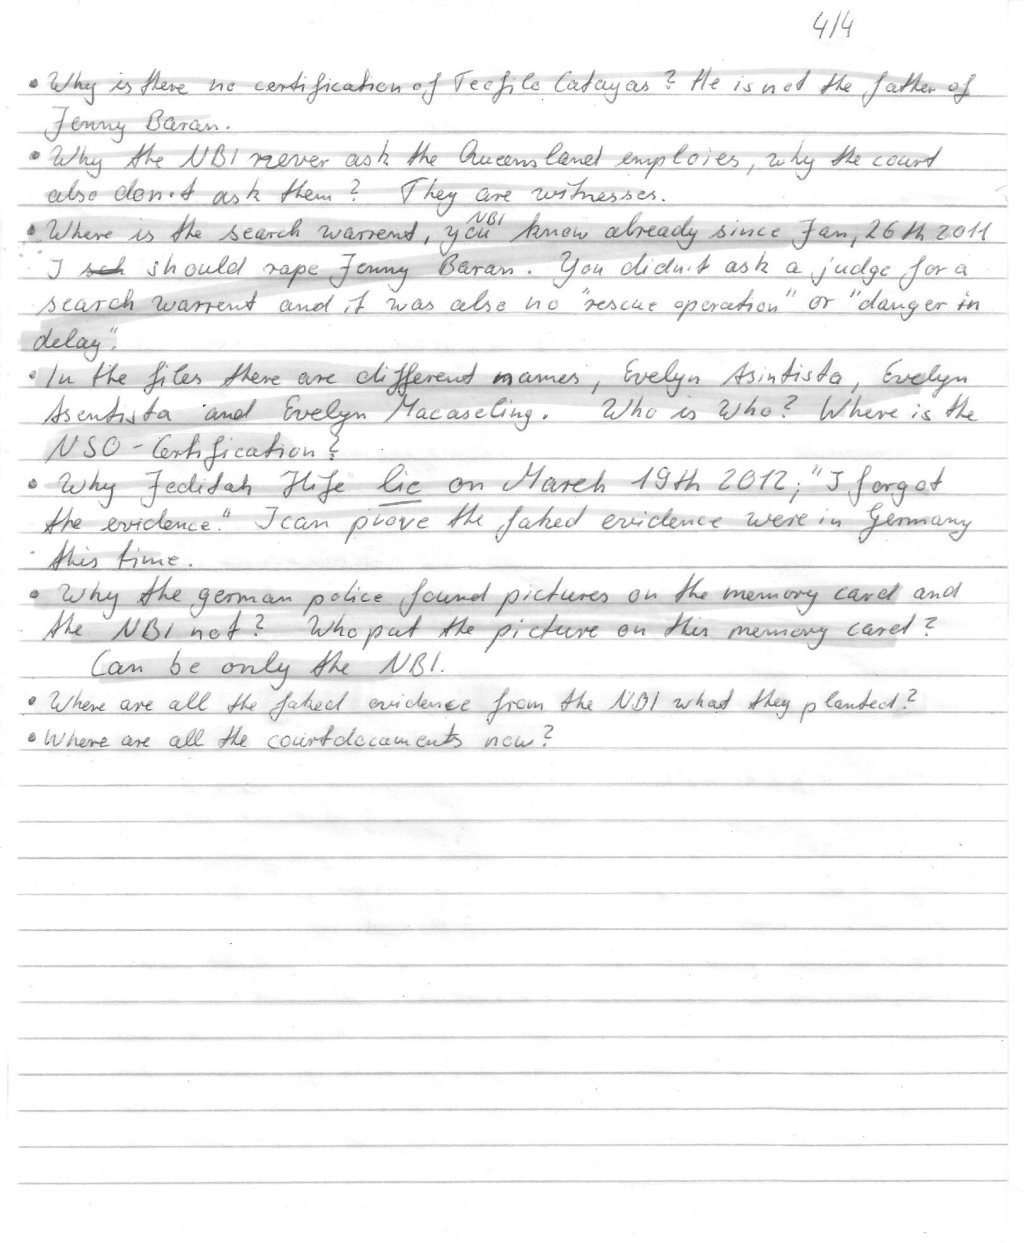 4/4
• Why is there no certification of Teofilo Catayas? He is not the father of
Jenny Baran.
• Why the NBI never ask the Queensland emploies, why the court
also don't ask them? They are witnesses.
• Where is the search warrent, you NBI know already since Jan, 26th 2011
I should rape Jenny Baran. You didn't ask a judge for a
search warrent and it was also no "rescue operation" or "danger in
delay".
• In the files there are different names, Evelyn Asintista, Evelyn
Asentista and Evelyn Macaseling. Who is Who? Where is the
NSO-Certification?
• Why lie on March 19th 2012; "I forgot
the evidence." I can prove the faked evidence were in Germany
this time.
• Why the german police found pictures on the memory card and
the NBI not? Who put the picture on this memory card?
Can be only the NBI.
• Where are all the faked evidence from the NBI what they planted?
• Where are all the courtdocaments now?